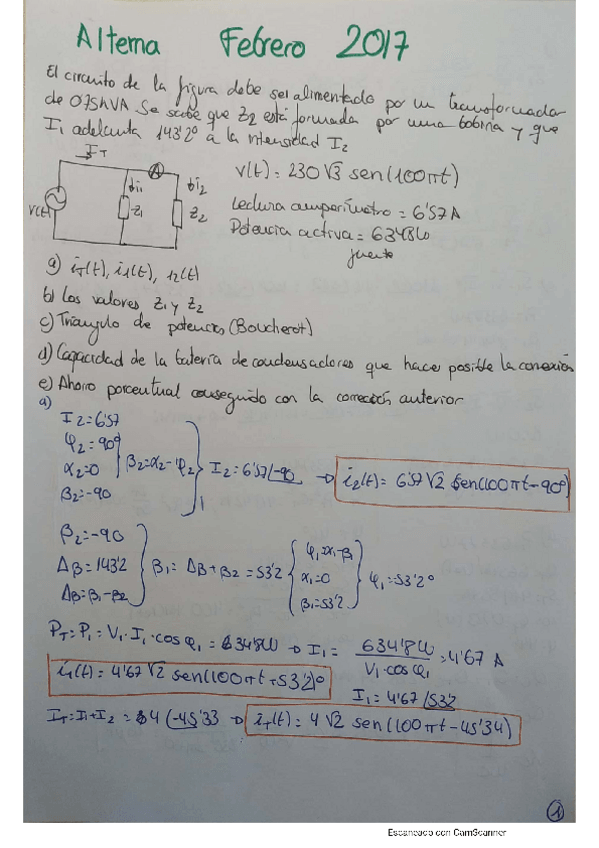 Alterna Febrero 2017
El circuito de la figura debe ser alimentado por un transformador
de 0'75kVA Se sabe que Z2 está formada por una bobina y que
I1 adelanta 143'2º a la intensidad I2
IT
A
i1
i2
Z1
Z2
V(t)
v(t) = 230√3 sen(100πt)
Lectura amperímetro = 6'57 A
Potencia activa = 634'8W
fuente
a) iT(t), i1(t), i2(t)
b) Los valores Z1 y Z2
c) Triángulo de potencias (Boucherot)
d) Capacidad de la batería de condensadores que hace posible la conexión
e) Ahorro porcentual conseguido con la corrección anterior
a)
I2 = 6'57
φ2 = 90º
α2 = 0
β2 = -90
β2 = α2 - φ2
I2 = 6'57/-90 → i2(t) = 6'57 √2 sen(100πt - 90º)
β2 = -90
Δβ = 143'2
Δβ = β1 - β2
β1 = Δβ + β2 = 53'2
φ1 = α1 - β1
α1 = 0
β1 = 53'2
φ1 = 53'2º
PT = P1 = V1 · I1 · cos φ1 = 634'8W → I1 = 634'8W / V1 · cos φ1 = 4'67 A
i1(t) = 4'67 √2 sen(100πt + 53'2)º
I1 = 4'67 /53'2
IT = I1 + I2 = 4 /-45'33 → iT(t) = 4 √2 sen(100πt - 45'34)
1
Escaneado con CamScanner